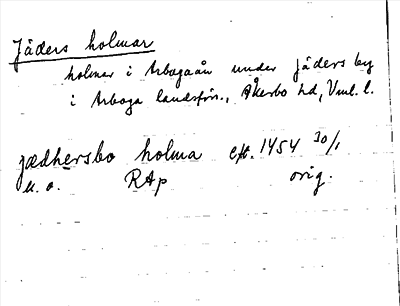 Jäders holmar
holmar i Arbogaån under Jäders by
i Arboga landsfös., Åkerbo hd, Vml. l.
jædhersbo holma eft. 1454 30/1
u. o. RAp orig.